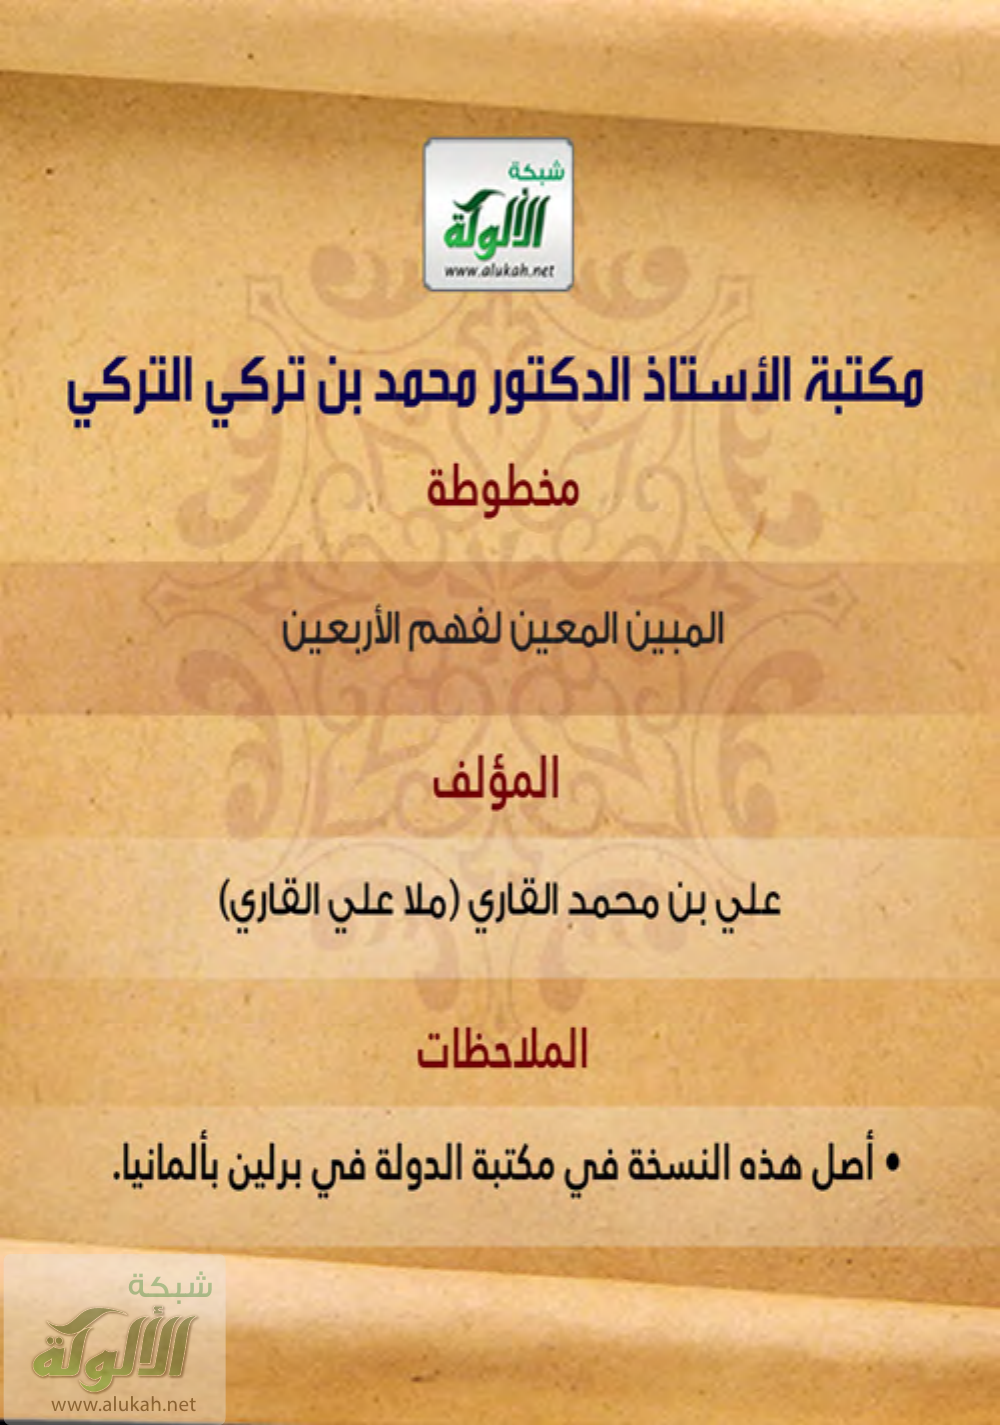 شبكة
الألوكة
www.alukah.net
مكتبة الأستاذ الدكتور محمد بن تركي التركي
مخطوطة
المبين المعين لفهم الأربعين
المؤلف
علي بن محمد القاري (ملا علي القاري)
الملاحظات
• أصل هذه النسخة في مكتبة الدولة في برلين بألمانيا.
شبكة
الألوكة
www.alukah.net